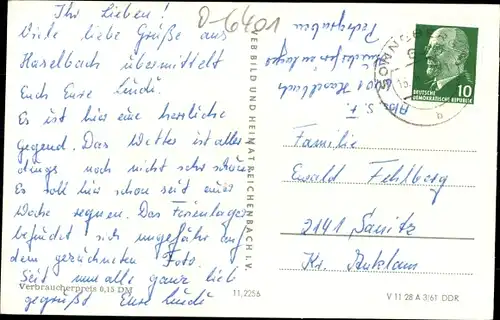 Ihr Lieben!
Viele liebe Grüße aus
Haselbach übermittelt
Euch Eure Lündi.
Es ist hier eine herrliche
Gegend. Das Wetter ist aller
dings noch nicht sehr schön.
Es soll hier schon seit einer
Woche regnen. Das Ferienlager
befindet sich ungefähr auf
dem gezeichneten Foto.
Seit nun alle ganz lieb
gegrüßt Eure Lündi
Verbraucherpreis 0,15 DM
11,2256
0-6401
VEB BILD UND HEIMAT REICHENBACH i. V.
Abs. S. F.
6401 Haselbach
SONNEBERG
DEUTSCHE
DEMOKRATISCHE REPUBLIK
10
b
Familie
Ewald Fehlberg
2141 Sanitz
Kr. Anklam
V 11 28 A 3/61 DDR